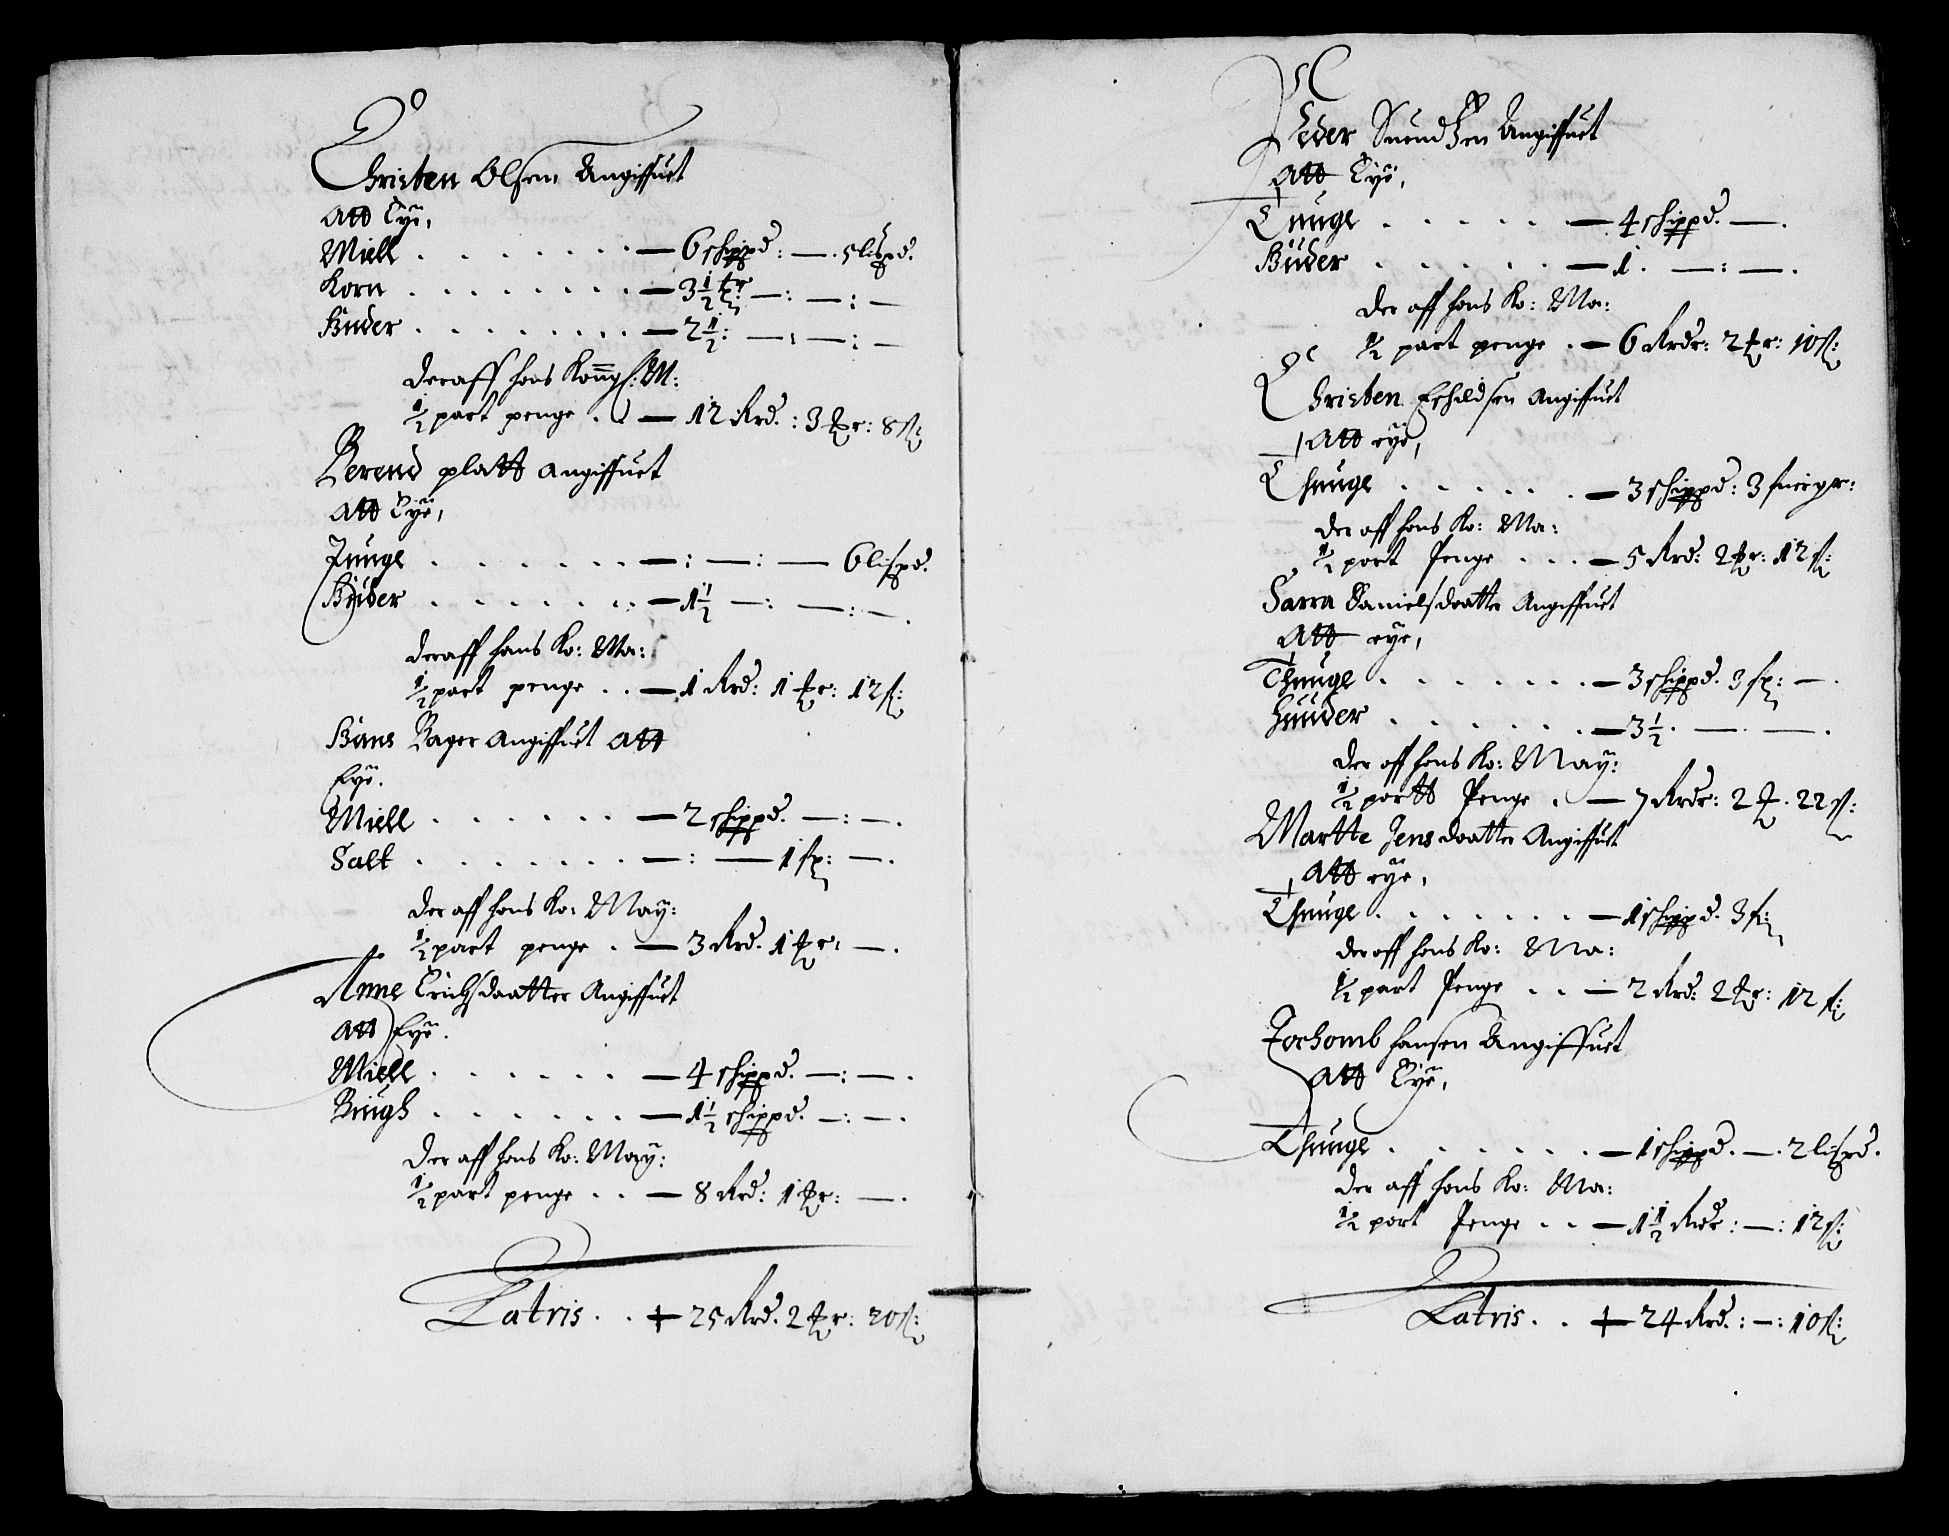 Christen Olsen Angiffuet
Att Eye,
Miell . . . . . . . — 6 schippd: — . 5 lispd.
Korn . . . . . . . . — 3 1/2 tr: — : — : —
Huder . . . . . . . . — 2 1/2 : — : — : —
Deraff hans Konngl: M:
1/2 part penge . . — 12 Rd. : 3 tr: 8 s:
Berend platt angiffuet
Att Eye,
Tunge . . . . . . — : — : — 6 lispd.
Huder . . . . . . . — 1 1/2 — : — : — .
Deraff hans Ko: Ma:
1/2 part penge . . — 1 Rd: 1 tr: 12 s:
Hans Bager Angiffuet Att
Eye.
Miell . . . . . . — 2 schippd. — : — .
Salt . . . . . . . — : — 1 sp: — .
Der aff hans Ko: May:
1/2 part penge . — 3 Rd. 1 tr: — .
Anne Erichsdaatter Angiffuet
Att Eye.
Miell . . . . . . — 4 schippd. — : — .
Rugh . . . . . . — 1 1/2 schippd. — : — .
Der aff hans Ko: May:
1/2 part penge . . — 8 Rd: 1 tr: — .
Latris . . + 25 Rd. 2 tr: 20 s:
Peder Suendsen Angiffuet
Att Eye,
Tunge . . . . . . — 4 schippd. — .
Huder . . . . . — 1 . — : — .
Der aff hans Ko: Ma:
1/2 part penge . — 6 Rdr: 2 tr: 10 s:
Christen Eschildsen Angiffuet
Att eye,
Thunge . . . . . . — 3 schippd:
Der aff hans Ko: Ma:
1/2 part Penge . . . — 5 Rd: 2 tr: 12 s:
Sarra Danielsdaatter Angiffuet
Att eye,
Thunge . . . . . . . — 3 schippd. 3 sp: — .
Huuder . . . . . . — 3 1/2 . — . — .
Der aff hans Ko: May:
1/2 partt Penge . — 7 Rdr: 2 t. 22 s:
Martte Jensdaatter Angiffuet
Att eye,
Thunge . . . . . . . — 1 schippd. 3
der aff hans Ko: Ma:
1/2 part Penge . . — 2 Rd: 2 tr: 12 s:
Jochomb hansen Angiffuet
Att Eye,
Thunge . . . . . . — 1 schippd. — . 2 lispd.
Der aff hans Ko: Ma:
1/2 part Penge . . — 1 1/2 Rdr : — : 12 s:
Latris . . + 24 Rd. : — : 10 s: